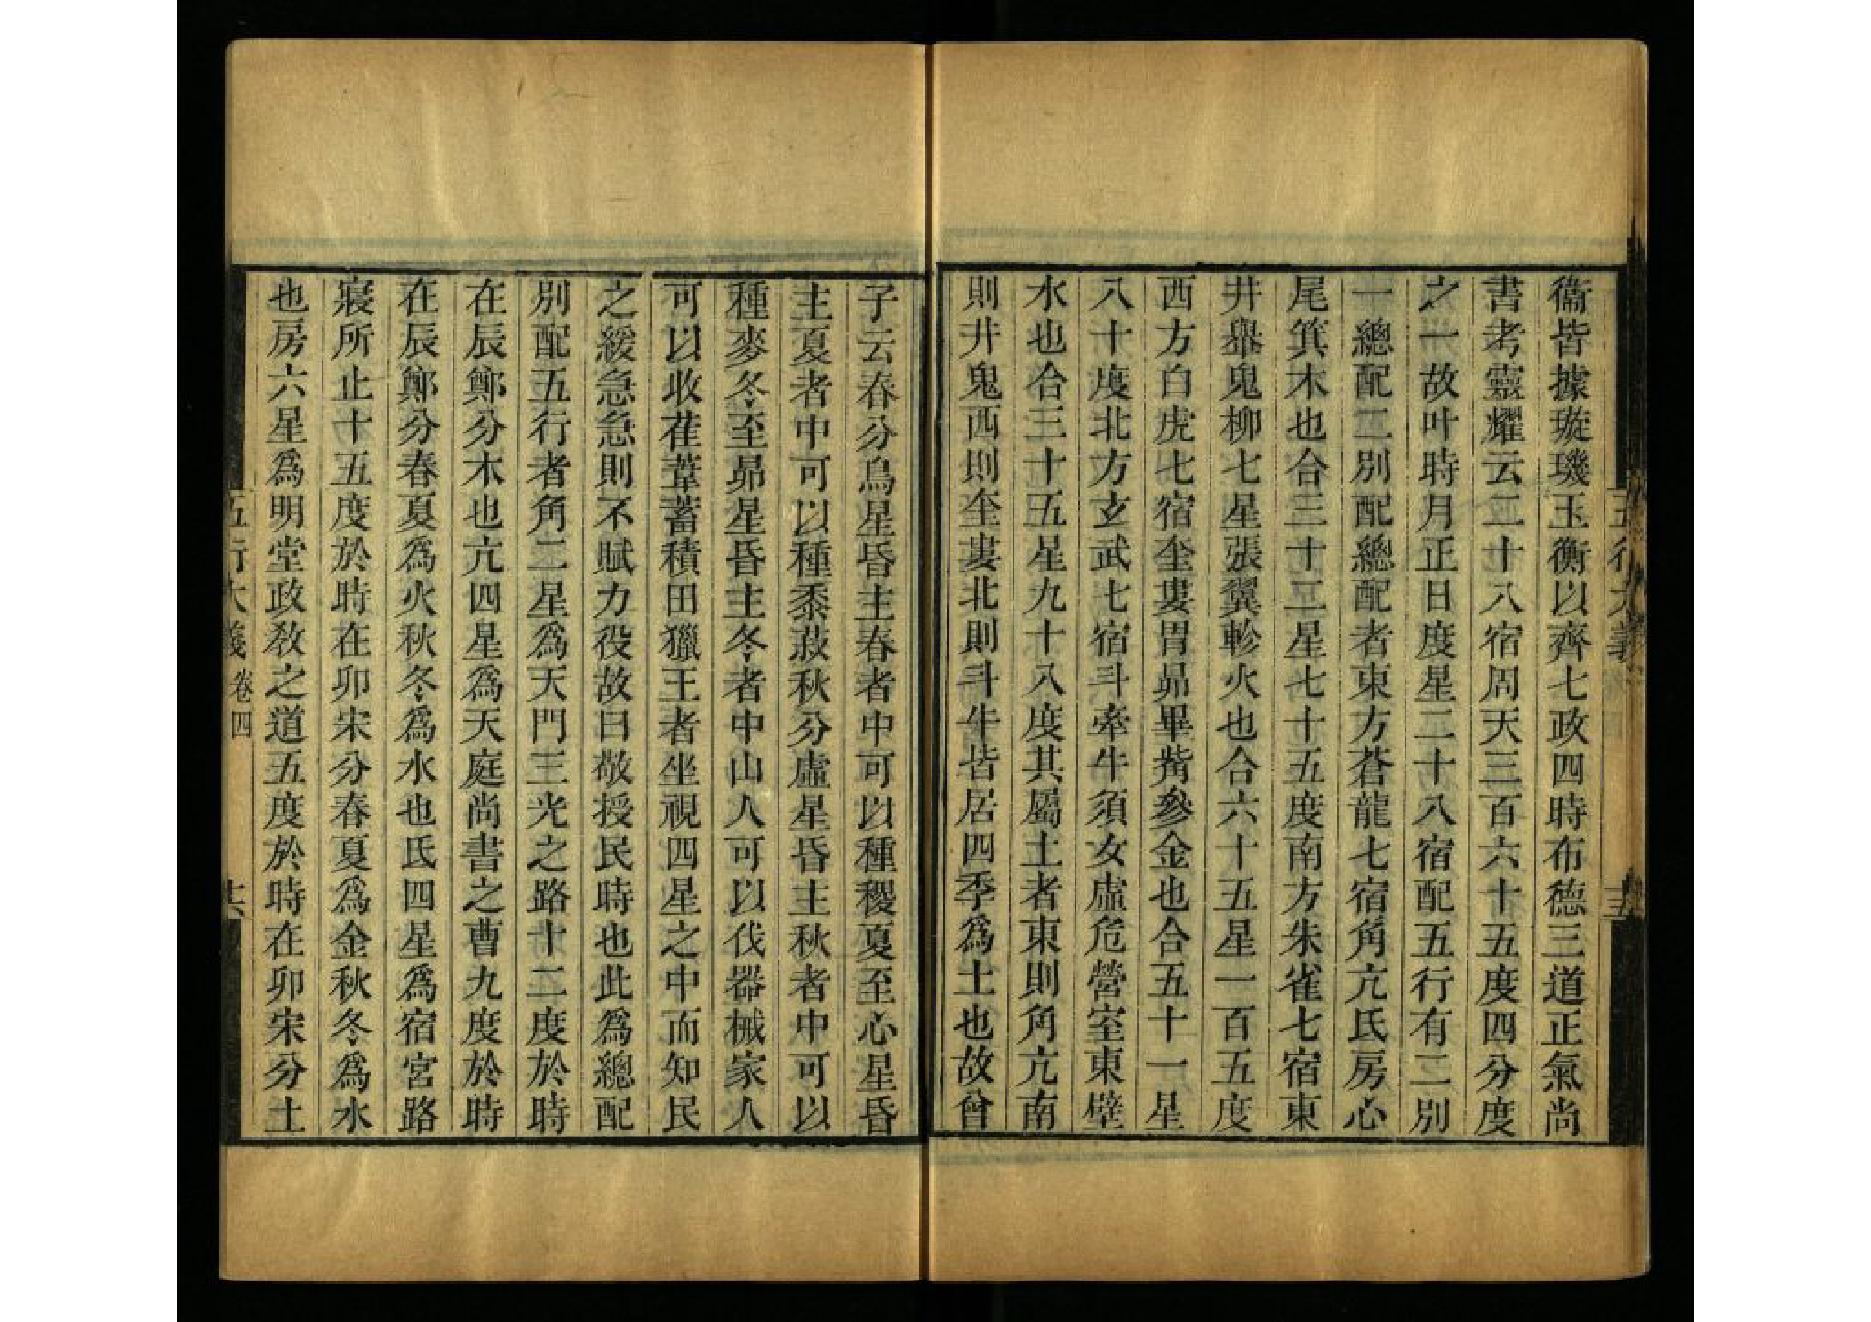 衞皆據璇璣玉衡以齊七政四時布德三道正氣尚
書考靈耀云二十八宿周天三百六十五度四分度
之一故叶時月正日度星二十八宿配五行有二別
一總配二別配總配者東方蒼龍七宿角亢氐房心
尾箕木也合三十二星七十五度南方朱雀七宿東
井輿鬼柳七星張翼軫火也合六十五星一百五度
西方白虎七宿奎婁胃昴畢觜參金也合五十一星
八十度北方玄武七宿斗牽牛須女虛危營室東壁
水也合三十五星九十八度其屬土者東則角亢南
則井鬼西則奎婁北則斗牛皆居四季爲土也故曾
子云春分鳥星昏主春者中可以種稷夏至心星昏
主夏者中可以種黍菽秋分虛星昏主秋者中可以
種麥冬至昴星昏主冬者中山人可以伐器械家人
可以收萑葦蓄積田獵王者坐視四星之中而知民
之緩急急則不賦力役故曰敬授民時也此爲總配
別配五行者角二星爲天門三光之路十二度於時
在辰鄭分木也亢四星爲天庭尚書之曹九度於時
在辰鄭分春夏爲火秋冬爲水也氐四星爲宿宮路
寢所止十五度於時在卯宋分春夏爲金秋冬爲水
也房六星爲明堂政教之道五度於時在卯宋分土
五行大義 卷四 十六